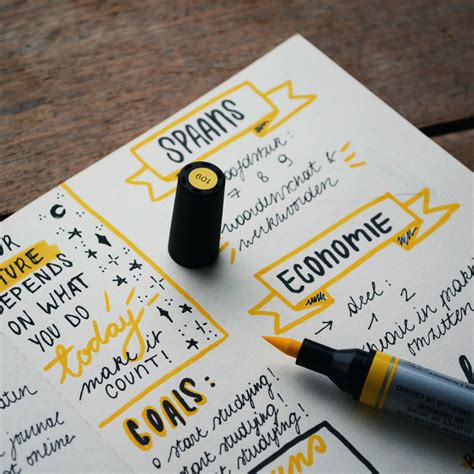 SPAANS
hoofdstuk:
7 8 9
woordenschat &
werkwoorden
109
TURE
DEPENDS
ON WHAT
YOU DO
today
make it
COUNT!
ECONOMIE
→ deel:
1 2
GOALS:
start studying!
start studying!
start studying!
journal
online